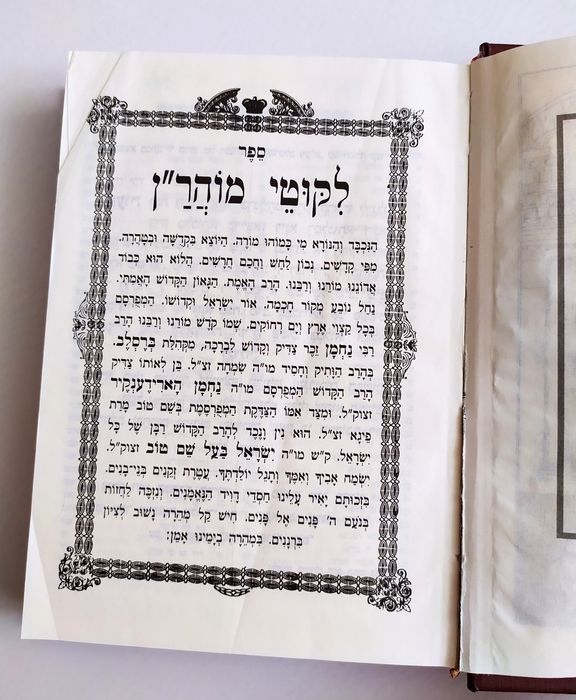 סֵפֶר
לִקּוּטֵי מוֹהֲרַ"ן
הַנִּכְבָּד וְהַנּוֹרָא מִי כָּמוֹהוּ מוֹרֶה. הַיּוֹצֵא בִּקְדֻשָּׁה וּבְטָהֳרָה.
מִפִּי קָדְשִׁים. נְבוֹן לַחַשׁ וַחֲכַם חֲרָשִׁים. הֲלוֹא הוּא כְּבוֹד
אֲדוֹנֵנוּ מוֹרֵנוּ וְרַבֵּנוּ. הָרַב הָאֱמֶת. הַגָּאוֹן הַקָּדוֹשׁ הָאֲמִתִּי.
נַחַל נוֹבֵעַ מְקוֹר חָכְמָה. אוֹר יִשְׂרָאֵל וּקְדוֹשׁוֹ. הַמְפֻרְסָם
בְּכָל קַצְוֵי אֶרֶץ וְיָם רְחוֹקִים. שְׁמוֹ קֹדֶשׁ מוֹרֵנוּ וְרַבֵּנוּ הָרַב
רַבִּי נַחְמָן זֵכֶר צַדִּיק וְקָדוֹשׁ לִבְרָכָה, מִקְּהִלַּת בְּרֶסְלֶב.
בְּהָרַב הַוָּתִיק וְחָסִיד מוֹ"ה שִׂמְחָה זצ"ל. בֵּן לְאוֹתוֹ צַדִּיק
הָרַב הַקָּדוֹשׁ הַמְפֻרְסָם מוֹ"ה נַחְמָן הָארִידֶענְקִיר
זצוק"ל. וּמִצַּד אִמּוֹ הַצַּדֶּקֶת הַמְפֻרְסֶמֶת בְּשֵׁם טוֹב מָרַת
פֵיגָא זצ"ל. הוּא נִין וָנֶכֶד לְהָרַב הַקָּדוֹשׁ רַבָּן שֶׁל כָּל
יִשְׂרָאֵל. ק"ש מוֹ"ה יִשְׂרָאֵל בַּעַל שֵׁם טוֹב זצוק"ל.
יִשְׂמַח אָבִיךָ וְאִמֶּךָ וְתָגֵל יוֹלַדְתֶּךָ. עֲטֶרֶת זְקֵנִים בְּנֵי־בָנִים.
בִּזְכוּתָם יָאִיר עָלֵינוּ חַסְדֵי דָוִיד הַנֶּאֱמָנִים. וְנִזְכֶּה לַחֲזוֹת
בְּנֹעַם ה' פָּנִים אֶל פָּנִים. חִישׁ קַל מְהֵרָה נָשׁוּב לְצִיּוֹן
בִּרְנָנִים. בִּמְהֵרָה בְיָמֵינוּ אָמֵן: